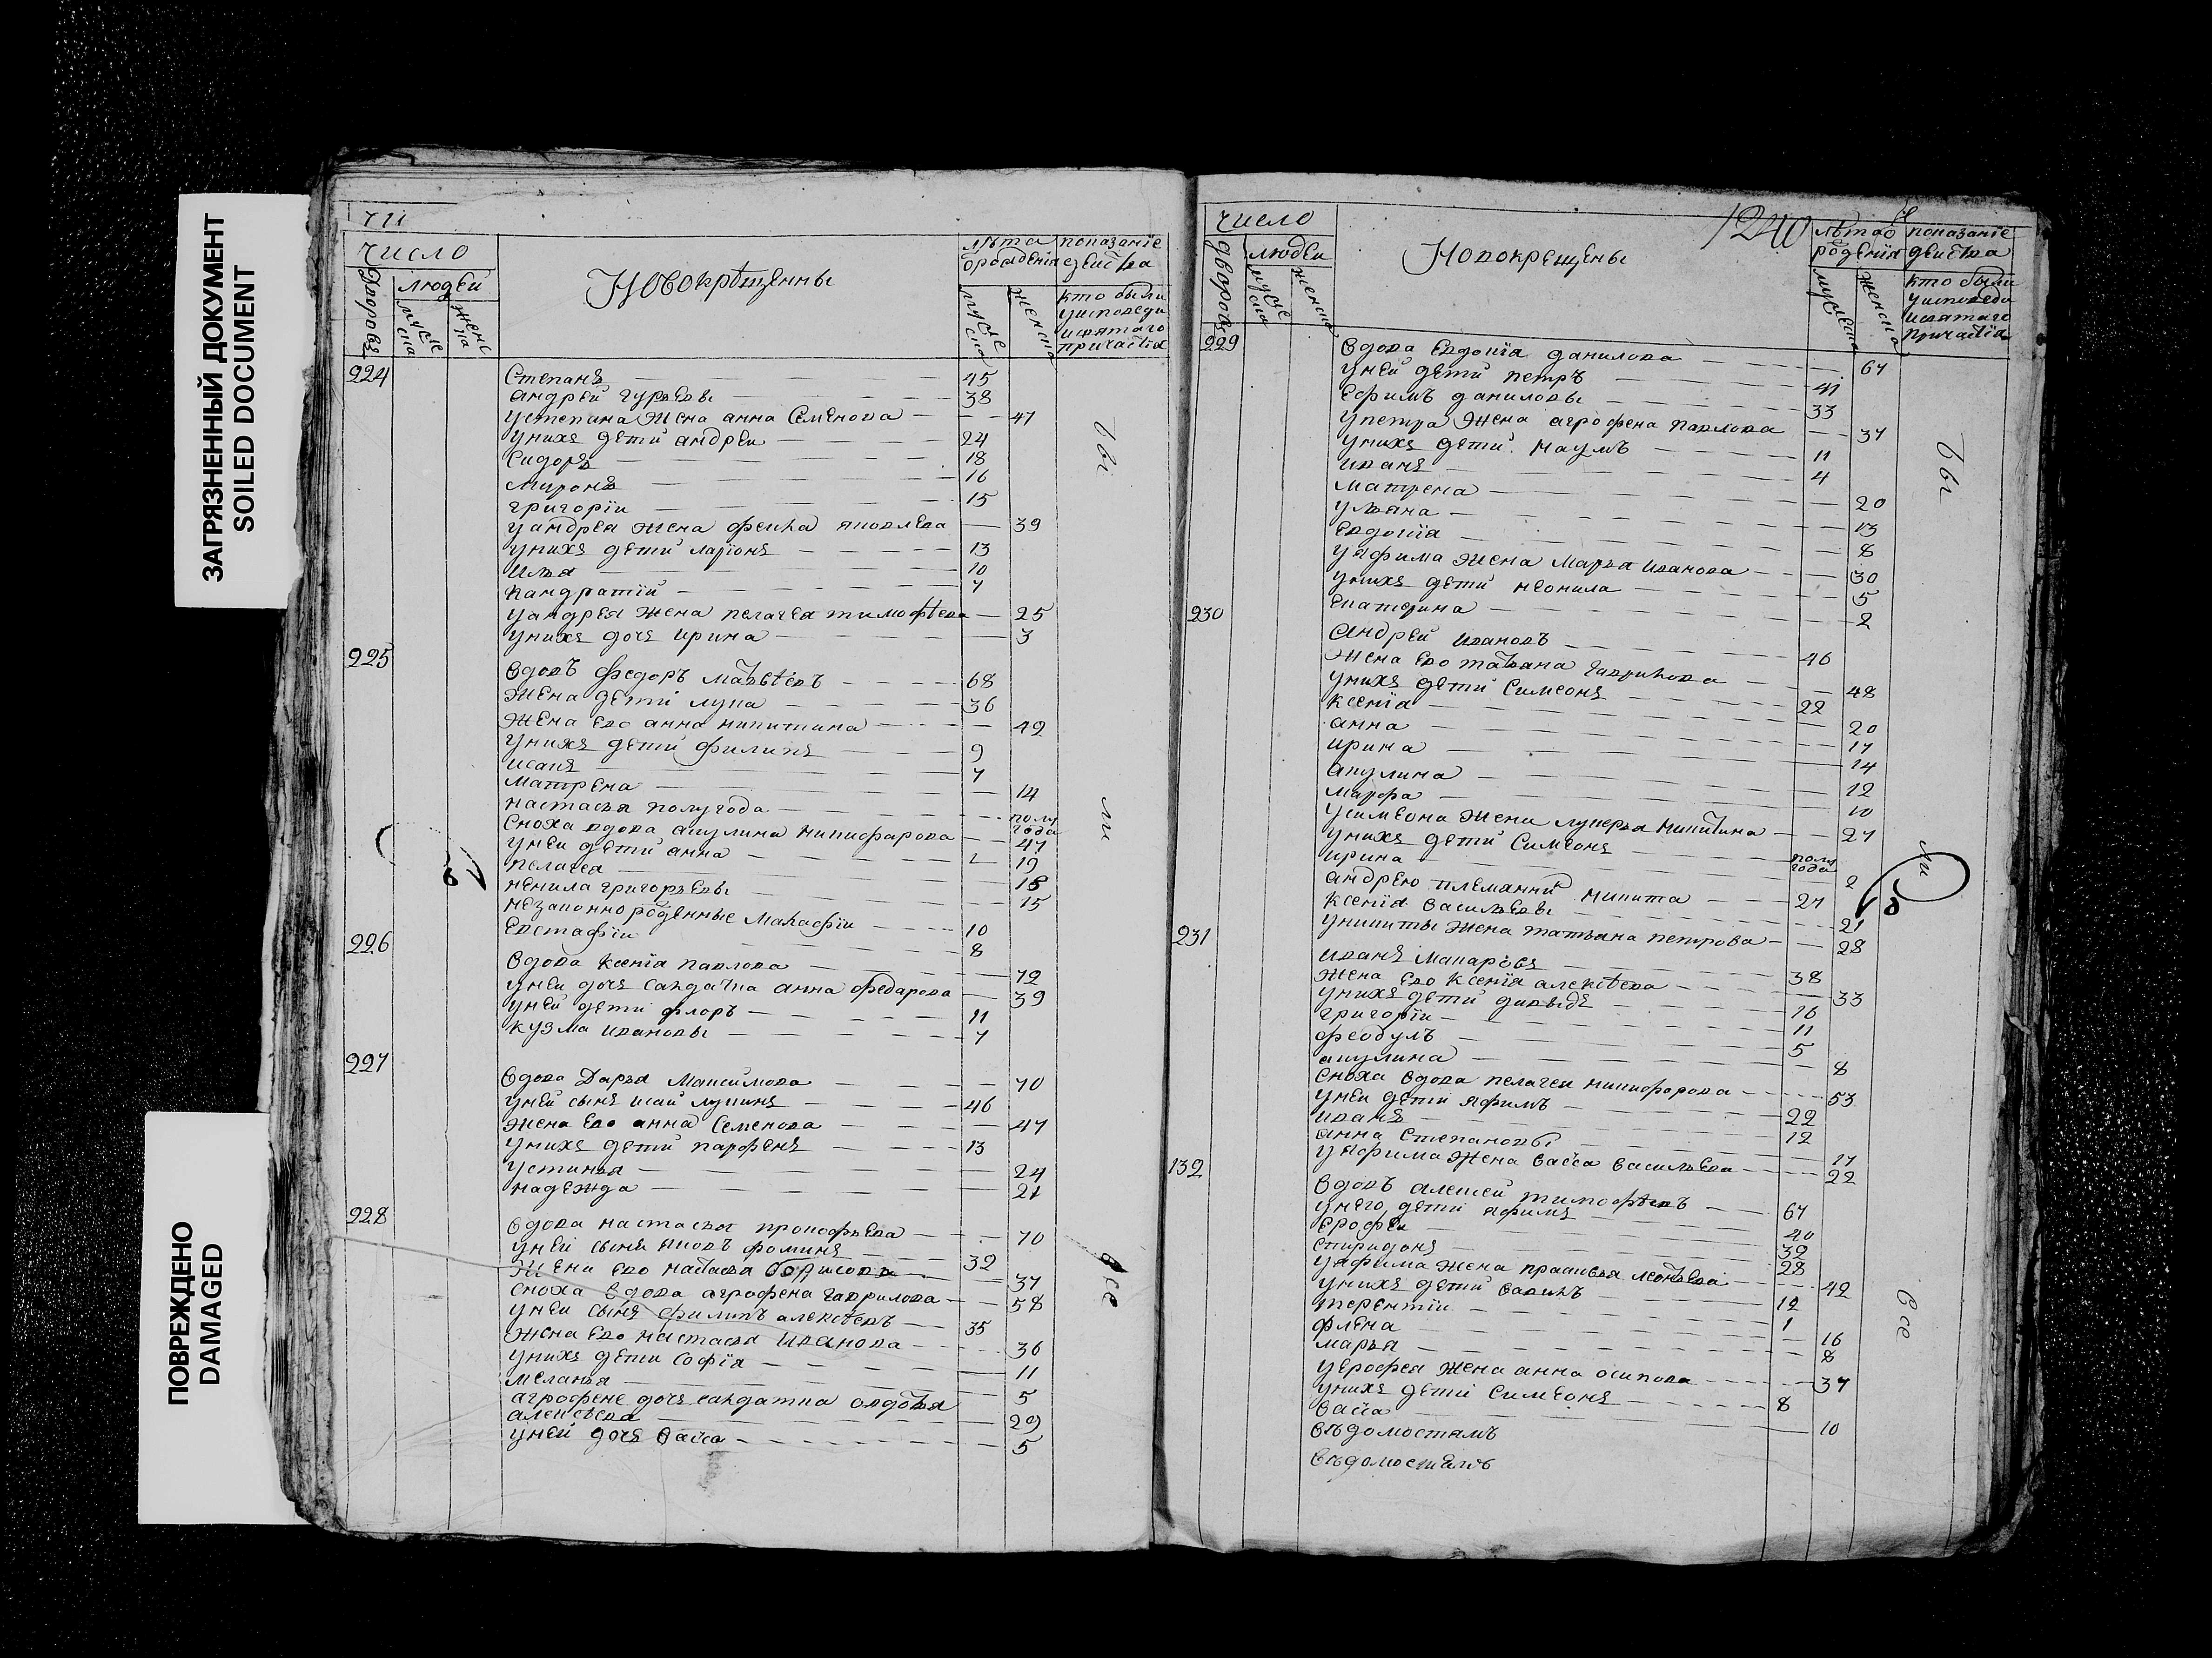 ЗАГРЯЗНЕННЫЙ ДОКУМЕНТ
SOILED DOCUMENT
ПОВРЕЖДЕНО
DAMAGED
число
людей
Дворовъ
мужеска
женска
Новокрѣщенны
лѣта от рождения
показанїе действа
мужеска
женска
кто были
уисповеди
исвятаго
причастїя
224
Степанъ 45
андрей гурьевы 38
устепана Жена анна Семенова 47
унихъ дети андреи 24
Сидоръ 18
Миронъ 16
григорїи 15
уандрея жена Жена яковлева 39
унихъ дети ларїонъ 13
Илья 10
кандратїй 7
уандрея Жена пелагея тимофѣева 25
унихъ дочь ирина 3
225
вдовъ федоръ матвѣевъ 68
Жена дети лука 36
Жена ево анна никитина 42
унихъ дети филипъ 9
исакъ 7
Матрена 14
настасья полугода полу года
Сноха вдова акулина никифарова 47
уней дети анна 19
пелагея 18
ненила григорьевы 15
незаконнорожденные Макафїи 10
Евстафїи 8
226
вдова ксенїа павлова 72
уней дочь салдатка анна федарова 39
уней дети флоръ 11
кузма ивановы 7
227
вдова Дарья Максимова 70
уней сынъ исай лукинъ 46
жена ево анна Семенова 47
унихъ дети парфенъ 13
устинья 24
надежда 21
228
вдова настасья прокофьева 70
уней сынъ яковъ фоминъ 32
Жена ево настасья борисова 37
сноха вдова агрофена гаврилова 58
уней сынъ филипъ алексѣевъ 35
Жена ево настасья иванова 36
унихъ дети софїя 11
меланья 5
агрофене дочь салдатка авдотья
алексѣева 29
уней дочь васса 5
вы
ли
все
число
дворовъ
людей
мужеска
женска
Новокрещены
1240
лѣта от рождения
показанїе действа
мужеска
женска
кто были
уисповеди
исвятаго
причастїя
229
вдова евдокїа данилова 67
уней дети петръ 41
ефимъ даниловы 33
упетра Жена агрофена павлова 37
унихъ дети наумъ 11
иванъ 4
матрена 20
ульяна 13
евдокїа 8
уяфима жена Марья иванова 30
унихъ дети неонила 5
екатерина 2
230
андрей ивановъ 46
Жена ево татьяна гаврилова 48
унихъ дети симеонъ 22
ксенїа 20
анна 17
ирина 14
акулина 12
марфа 10
усимеона Жена лукерья никитина 27
унихъ дети Симеонъ полугода
ирина 2
андрею племянник никита 27
ксенїа васильевы 21
уникиты жена татьяна петрова 28
231
иванъ макаровъ 38
Жена ево ксенїа алексѣева 33
унихъ дети давыдъ 16
григорїи 11
феодулъ 5
акулина 8
сноха вдова пелагея никифорова 53
уней дети яфимъ 22
иванъ 12
анна степановы 17
уяфима Жена васса васильева 22
132
вдовъ алексей тимофѣевъ 67
унего дети яфимъ 40
ерофеи 32
спиридонъ 28
уяфима жена прасковья леонтьева 42
унихъ дети 12
терентїи 1
флена 16
марья 8
уерофея жена анна осипова 37
унихъ дети Симеонъ 8
васса 10
вѣдомостямъ
вѣдомостямъ
вы
ли
все